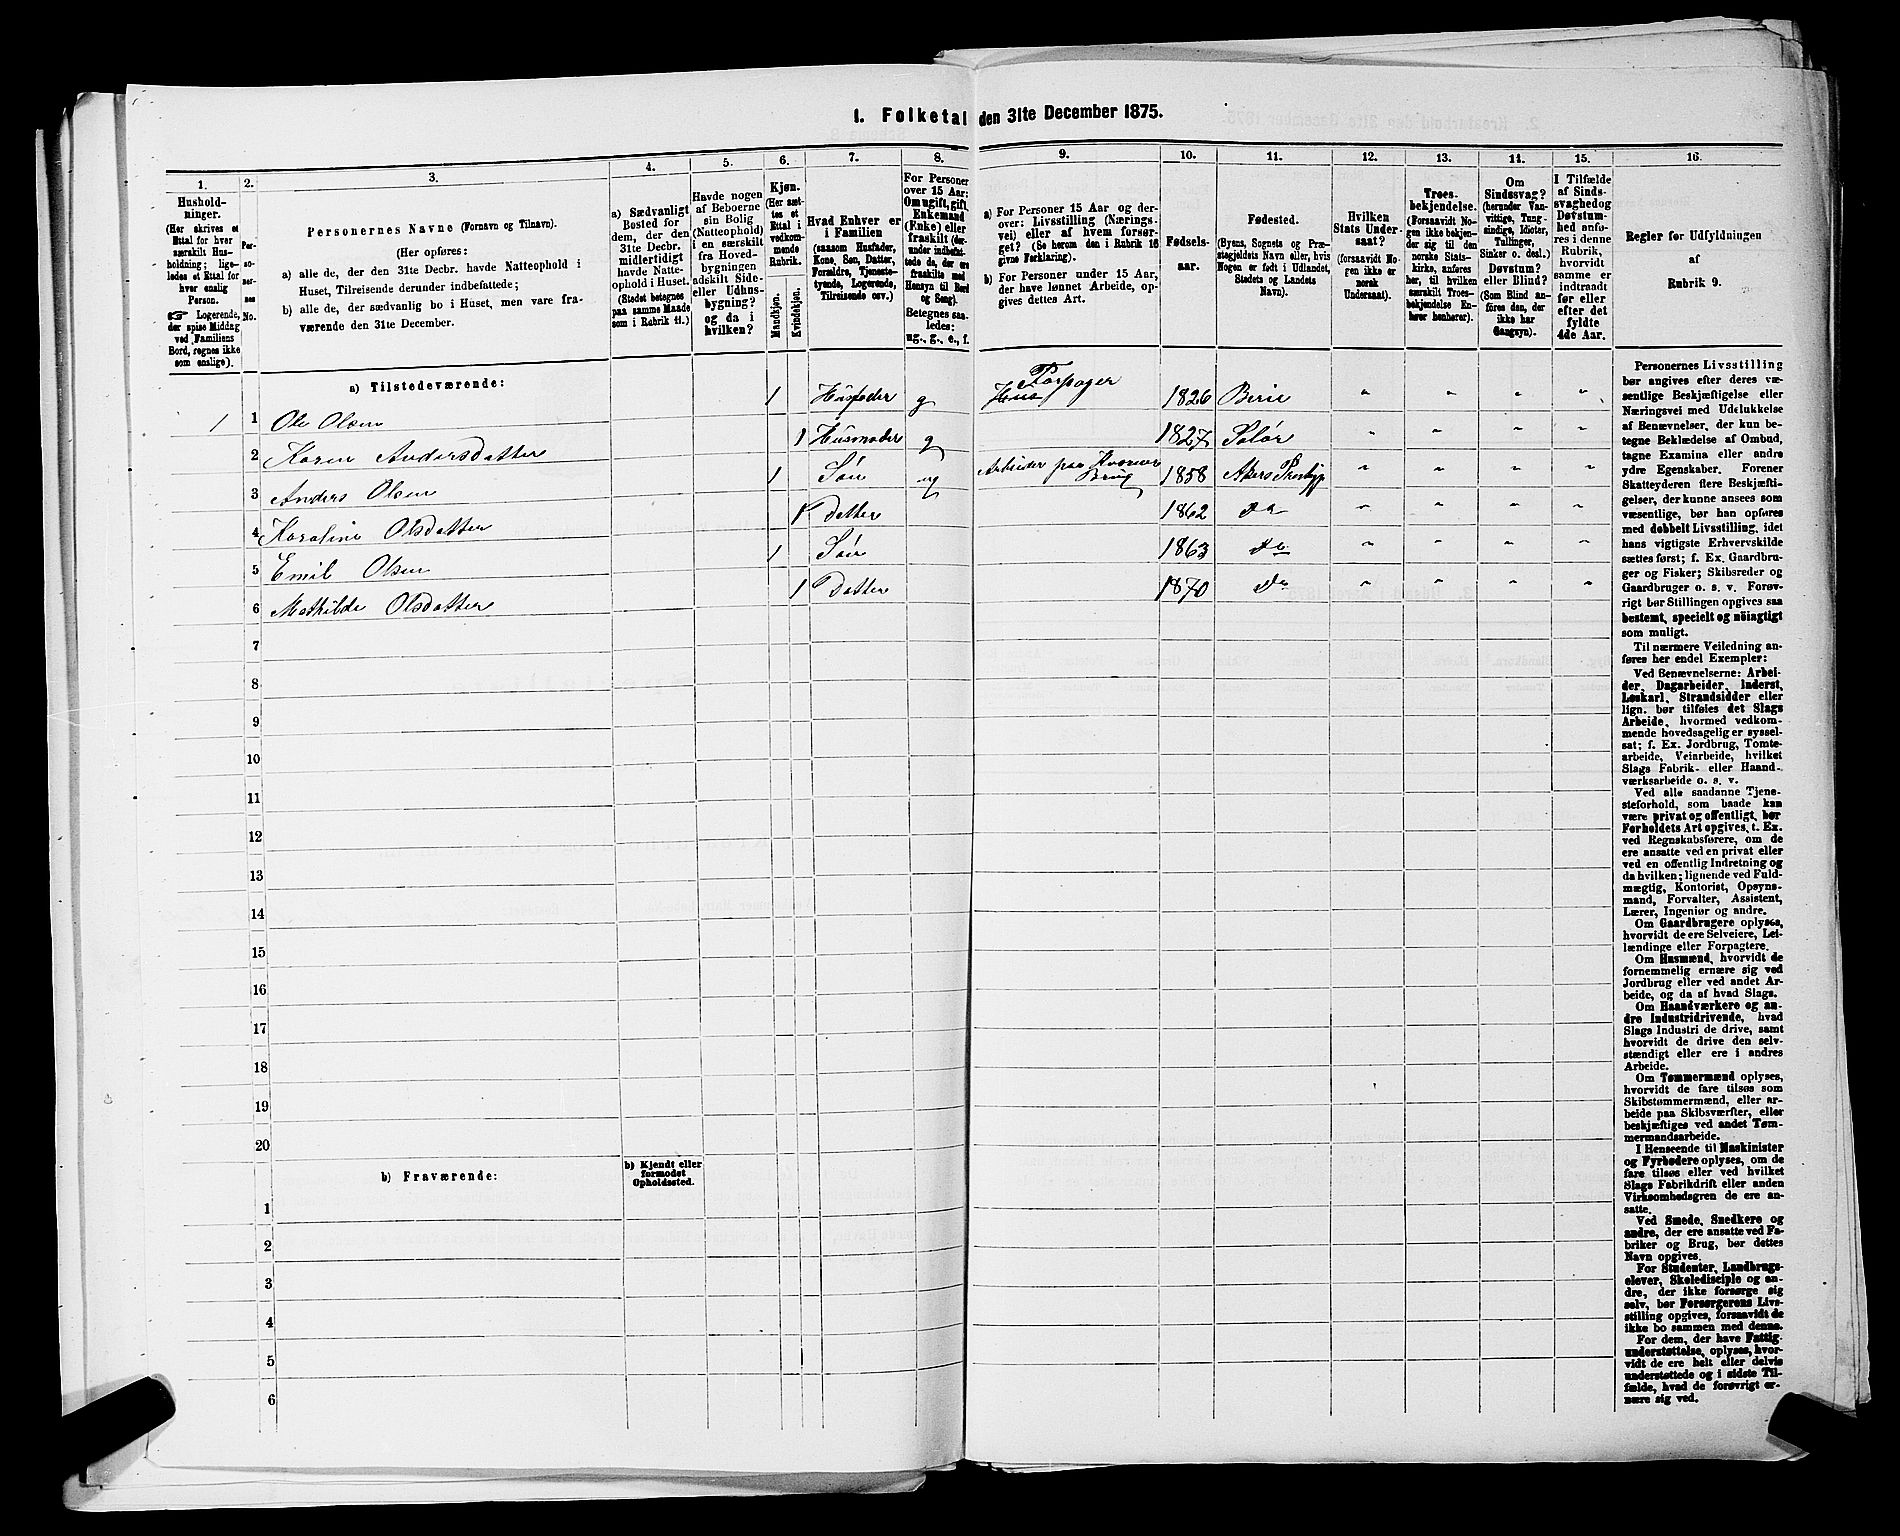 1. Folketal den 31te December 1875.
1. 2. 3. 4. 5. 6. 7. 8. 9. 10. 11. 12. 13. 14. 15. 16.
Hushold-
ninger.
(Her skrives et
Ettal for hver
særskilt Hus-
holdning; lige-
ledes et Ettal for
hver enslig
Person.
☞ Logerende,
der spise Middag
ved Familiens
Bord, regnes ikke
som enslige).
Per-
so-
ner-
nes
No.
Personernes Navne (Fornavn og Tilnavn).
(Her opføres:
a) alle de, der den 31te Decbr. havde Natteophold i
Huset, Tilreisende derunder indbefattede;
b) alle de, der sædvanlig bo i Huset, men vare fra-
værende den 31te December.
a) Sædvanligt
Bosted for
dem, der den
31te Decbr.
midlertidigt
havde Natte-
ophold i Huset.
(Stedet betegnes
paa samme Maade
som i Rubrik 11.)
Havde nogen
af Beboerne
sin Bolig
(Natteophold)
i en særskilt
fra Hoved-
bygningen
adskilt Side-
eller Udhus-
bygning?
og da i
hvilken?
Kjøn.
(Her sæt-
tes et
Ettal i
vedkom-
mende
Rubrik.
Mandkjøn.
Kvindekjøn.
Hvad Enhver er
i Familien
(saasom Husfader,
Kone, Søn, Datter,
Forældre, Tjeneste-
tyende, Logerende,
Tilreisende osv.)
For Personer
over 15 Aar:
Om ugift, gift,
Enkemand
(Enke) eller
fraskilt (der-
under indbefat-
tede da, der ere
fraskilte med
Hensyn til Bord
og Seng).
Betegnes saa-
ledes:
ug., g., e., f.
a) For Personer 15 Aar og der-
over: Livsstilling (Nærings-
vei) eller af hvem forsør-
get? (Se herom den i Rubrik 16
givne Forklaring).
b) For Personer under 15 Aar,
der have lønnet Arbeide, op-
gives dettes Art.
Fødsels-
aar.
Fødested.
(Byens, Sognets og Præ-
stegjeldets Navn eller, hvis
Nogen er født i Udlandet,
Stedets og Landets
Navn).
Hvilken
Stats Under-
saat?
(forsaavidt No-
gen ikke er
norsk
Undersaat).
Troes-
bekjendelse.
(Forsaavidt No-
gen ikke bekjen-
der sig til den
norske Stats-
kirke, anføres
her, til hvilken
særskilt Troes-
bekjendelse En-
hver henhører).
Om
Sindssvag?
(herunder Van-
vittige, Tung-
sindige, Idioter,
Tullinger,
Sinker o. desl.)
Døvstum?
eller Blind?
(Som Blind an-
føres den, der
ikke har
Gangsyn).
I Tilfælde
af Sinds-
svaghed og
Døvstum-
hed anfø-
res i denne
Rubrik,
hvorvidt
samme er
indtraadt
før eller
efter det
fyldte
4de Aar.
Regler for Udfyldningen
af
Rubrik 9.
a) Tilstedeværende:
1 1 Ole Olsen 1 Husfader g Hus Forpagter 1826 Birie " " " "
2 Karen Andersdatter 1 Husmoder g 1827 Solør " " " "
3 Anders Olsen 1 Søn ug Arbeider paa Brug 1858 Akers Præstgj " " " "
4 Karoline Olsdatter 1 Datter 1862 do " " " "
5 Emil Olsen 1 Søn 1863 do " " " "
6 Mathilde Olsdatter 1 Datter 1870 do " " " "
7
8
9
10
11
12
13
14
15
16
17
18
19
20
b) Fraværende:
b) Kjendt eller
formodet
Opholdssted.
1
2
3
4
5
6
Personernes Livsstilling
bør angives efter deres væ-
sentlige Beskjæftigelse eller
Næringsvei med Udelukkelse
af Benævnelser, der kun be-
tegne Beklædelse af Ombud,
tagne Examina eller andre
ydre Egenskaber. Forener
Skatteyderen flere Beskjæfti-
gelser, der kunne ansees som
væsentlige, bør han opføres
med dobbelt Livsstilling, idet
hans vigtigste Erhvervskilde
sættes først; f. Ex. Gaardbru-
ger og Fisker; Skibsreder og
Gaardbruger o. s. v. Forøv-
rigt bør Stillingen opgives saa
bestemt, specielt og nöiagtigt
som muligt.
Til nærmere Veiledning an-
føres her endel Exempler:
Ved Benævnelserne: Arbei-
der, Dagarbeider, Inderst,
Løskarl, Strandsidder eller
lign. bør tilføies det Slags
Arbeide, hvormed vedkom-
mende hovedsagelig er syssel-
sat; f. Ex. Jordbrug, Tomte-
arbeide, Veiarbeide, hvilket
Slags Fabrik- eller Haand-
værksarbeide o. s. v.
Ved alle saadanne Tjene-
steforhold, som baade kan
være privat og offentligt, bør
Forholdets Art opgives, t. Ex.
ved Regnskabsførere, om de
ere ansatte ved en privat eller
ved en offentlig Indretning og
da hvilken; lignende ved Fuld-
mægtig, Kontorist, Opsyns-
mand, Forvalter, Assistent,
Lærer, Ingeniør og andre.
Om Gaardbrugere oplyses,
hvorvidt de ere Selveiere, Lei-
lændinge eller Forpagtere.
Om Husmænd, hvorvidt de
fornemmelig ernære sig ved
Jordbrug eller ved andet Ar-
beide, og da af hvad Slags.
Om Haandværkere og an-
dre Industridrivende, hvad
Slags Industri de drive, samt
hvorvidt de drive den selv-
stændigt eller ere i andres
Arbeide.
Om Tømmermænd oplyses,
hvorvidt de fare tilsøs som
Skibstømmermænd, eller ar-
beide paa Skibsværfter, eller
beskjæftiges ved andet Tøm-
mermandsarbeide.
I Henseende til Maskinister
og Fyrbødere oplyses, om de
fare tilsøs eller ved hvilket
Slags Fabrikdrift eller anden
Virksomhedsgren de ere an-
satte.
Ved Smede, Snedkere og
andre, der ere ansatte ved Fa-
briker og Brug, bør dettes
Navn opgives.
For Studenter, Landbrugs-
elever, Skoledisciple og an-
dre, der ikke forsørge sig
selv, bør Forsørgerens Livs-
stilling opgives, forsaavidt de
ikke bo sammen med denne.
For dem, der have Fattig-
understøttelse, oplyses, hvor-
vidt de ere helt eller delvis
understøttede og i sidste Til-
fælde, hvad de forøvrigt er-
nære sig ved.